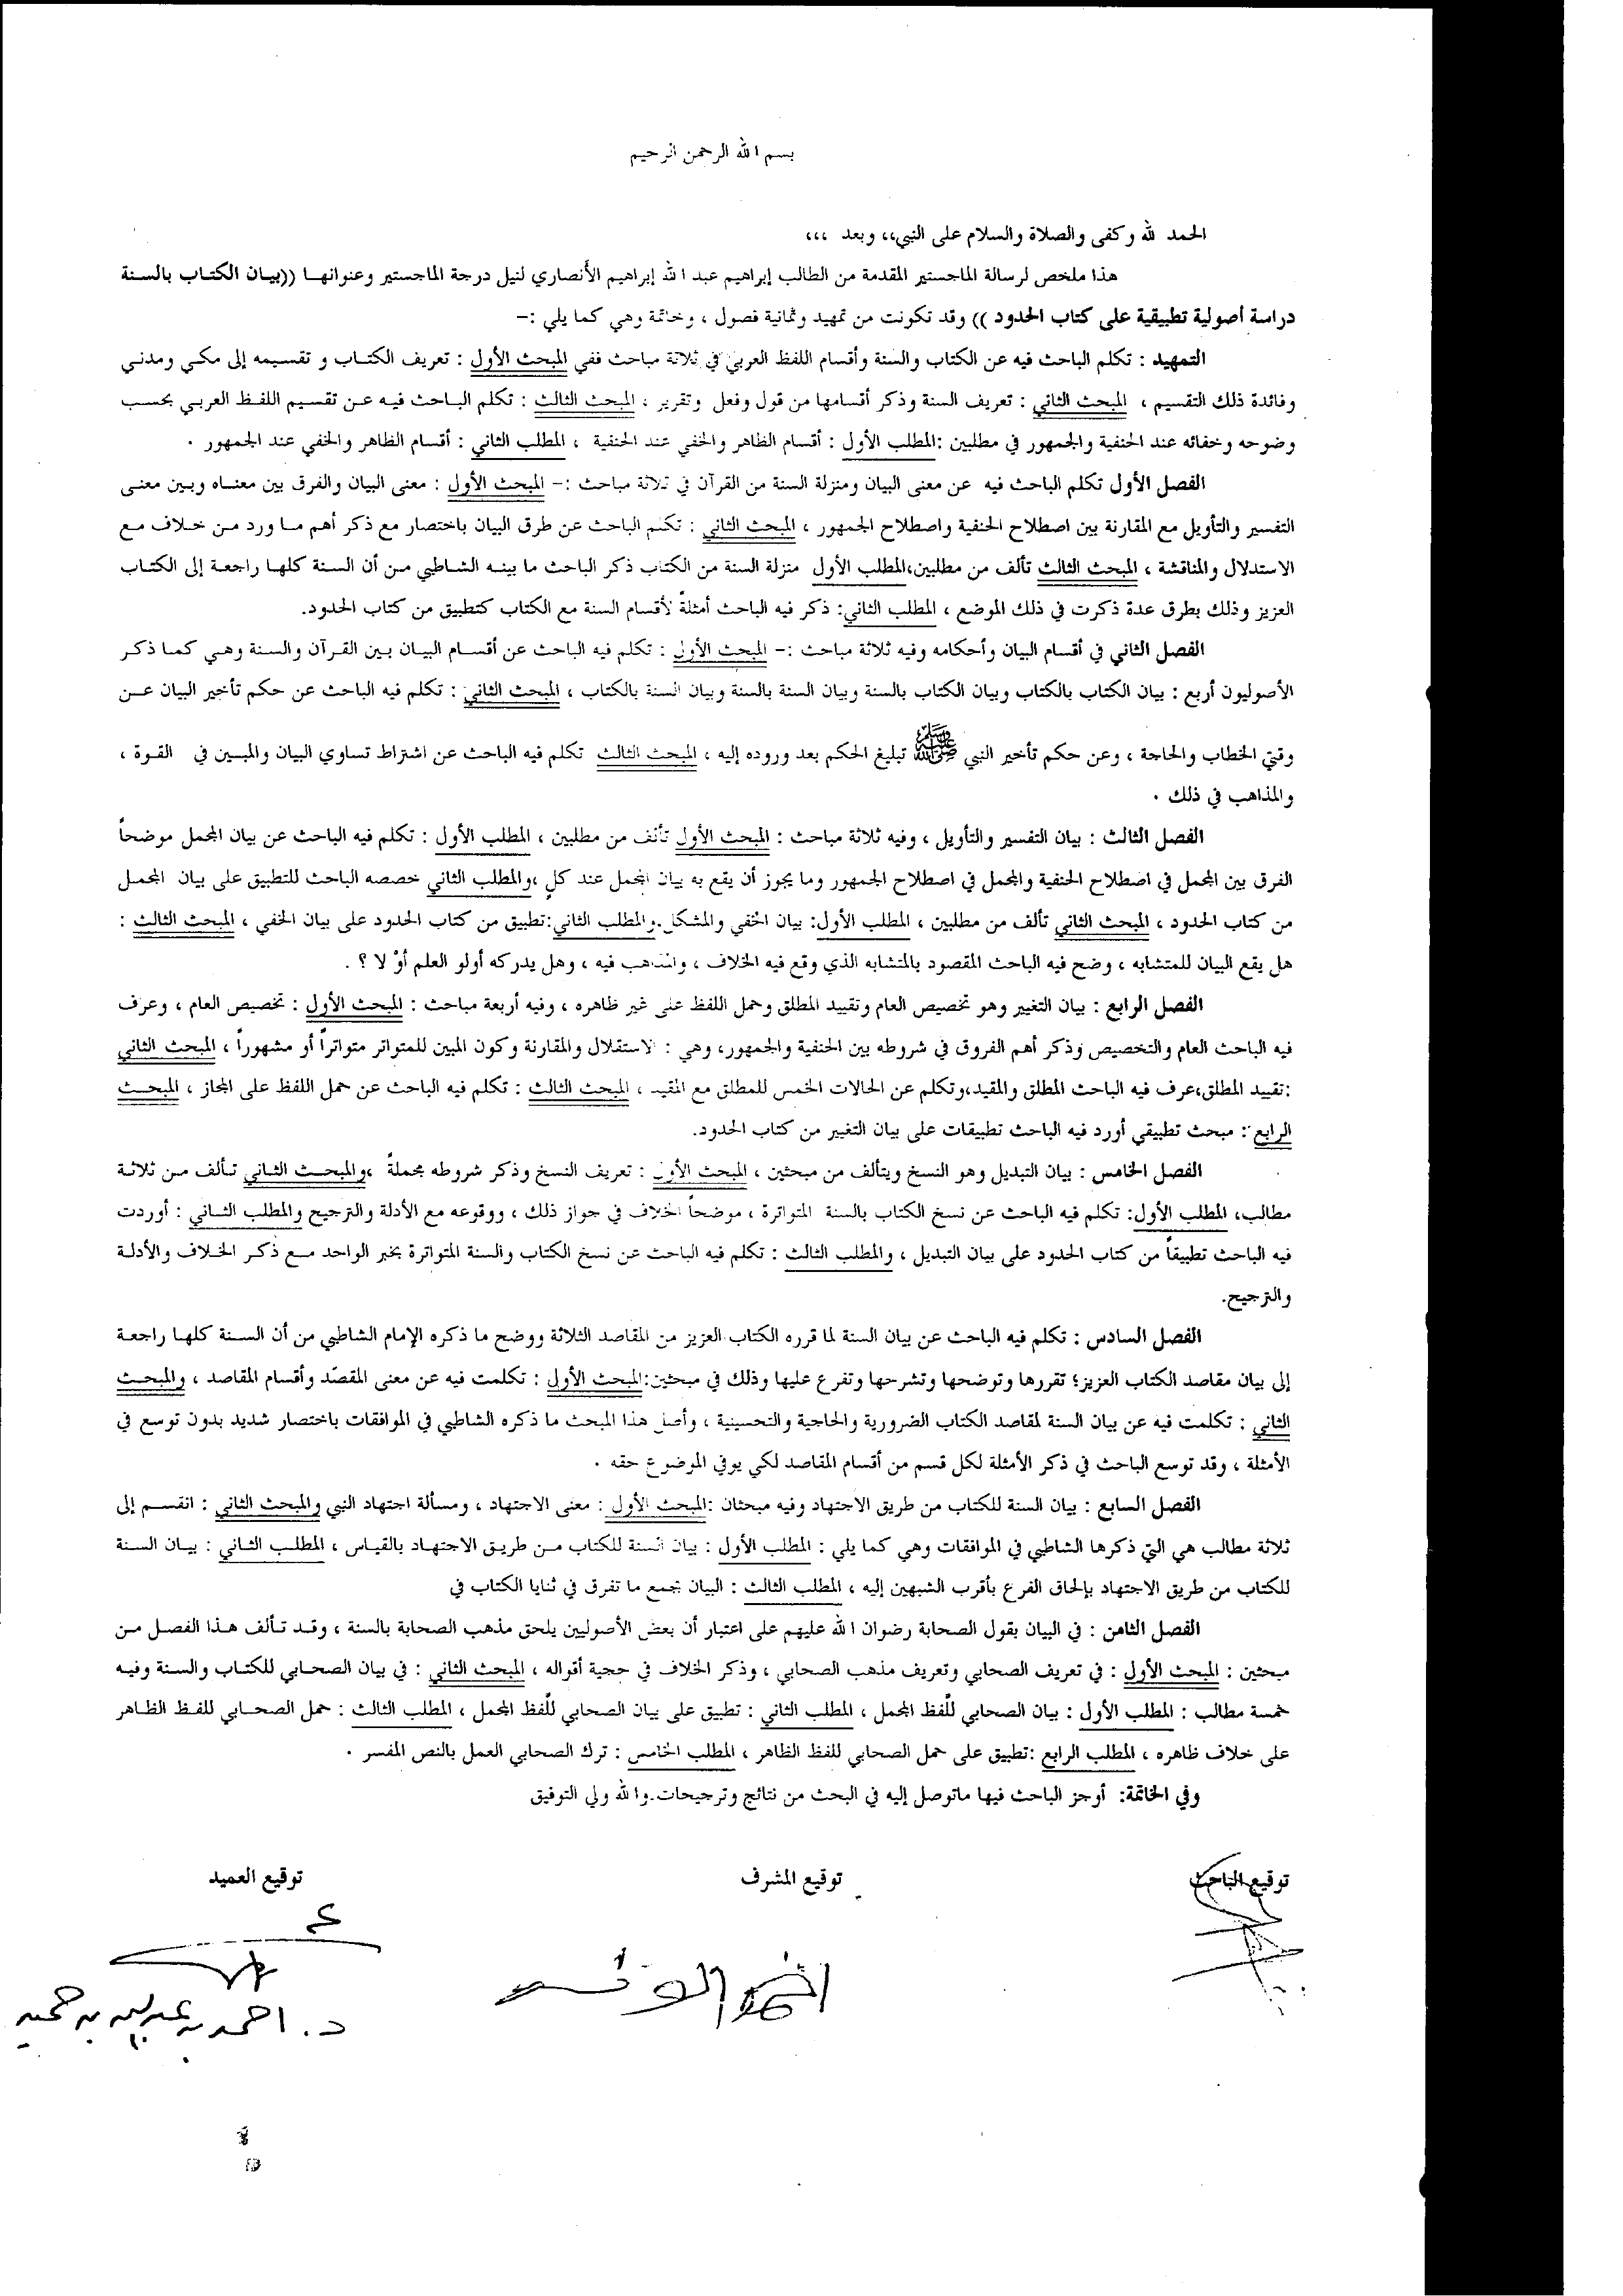 بسم الله الرحمن الرحيم
الحمد لله وكفى والصلاة والسلام على النبي،، وبعد ،،،
هذا ملخص لرسالة الماجستير المقدمة من الطالب إبراهيم عبد الله إبراهيم الأنصاري لنيل درجة الماجستير وعنوانها ((بيان الكتاب بالسنة
دراسة أصولية تطبيقية على كتاب الحدود )) وقد تكونت من تمهيد وثمانية فصول ، وخاتمة وهي كما يلي :–
التمهيد : تكلم الباحث فيه عن الكتاب والسنة وأقسام اللفظ العربي في ثلاثة مباحث ففي المبحث الأول : تعريف الكتاب و تقسيمه إلى مكي ومدني
وفائدة ذلك التقسيم ، المبحث الثاني : تعريف السنة وذكر أقسامها من قول وفعل وتقرير ، المبحث الثالث : تكلم الباحث فيه عن تقسيم اللفظ العربي بحسب
وضوحه وخفائه عند الحنفية والجمهور في مطلبين :المطلب الأول : أقسام الظاهر والخفي عند الحنفية ، المطلب الثاني : أقسام الظاهر والخفي عند الجمهور .
الفصل الأول تكلم الباحث فيه عن معنى البيان ومنزلة السنة من القرآن في ثلاثة مباحث :– المبحث الأول : معنى البيان والفرق بين معناه وبين معنى
التفسير والتأويل مع المقارنة بين اصطلاح الحنفية واصطلاح الجمهور ، المبحث الثاني : تكلم الباحث عن طرق البيان باختصار مع ذكر أهم ما ورد من خلاف مع
الاستدلال والمناقشة ، المبحث الثالث تألف من مطلبين،المطلب الأول منزلة السنة من الكتاب ذكر الباحث ما بينه الشاطبي من أن السنة كلها راجعة إلى الكتاب
العزيز وذلك بطرق عدة ذكرت في ذلك الموضع ، المطلب الثاني: ذكر فيه الباحث أمثلةً لأقسام السنة مع الكتاب كتطبيق من كتاب الحدود.
الفصل الثاني في أقسام البيان وأحكامه وفيه ثلاثة مباحث :– المبحث الأول : تكلم فيه الباحث عن أقسام البيان بين القرآن والسنة وهي كما ذكر
الأصوليون أربع : بيان الكتاب بالكتاب وبيان الكتاب بالسنة وبيان السنة بالسنة وبيان السنة بالكتاب ، المبحث الثاني : تكلم فيه الباحث عن حكم تأخير البيان عن
وقتي الخطاب والحاجة ، وعن حكم تأخير النبي ﷺ تبليغ الحكم بعد وروده إليه ، المبحث الثالث تكلم فيه الباحث عن اشتراط تساوي البيان والمبين في القوة ،
والمذاهب في ذلك .
الفصل الثالث : بيان التفسير والتأويل ، وفيه ثلاثة مباحث : المبحث الأول تألف من مطلبين ، المطلب الأول : تكلم فيه الباحث عن بيان المجمل موضحاً
الفرق بين المجمل في اصطلاح الحنفية والمجمل في اصطلاح الجمهور وما يجوز أن يقع به بيان المجمل عند كلٍ ،والمطلب الثاني خصصه الباحث للتطبيق على بيان المجمل
من كتاب الحدود ، المبحث الثاني تألف من مطلبين ، المطلب الأول: بيان الخفي والمشكل.والمطلب الثاني:تطبيق من كتاب الحدود على بيان الخفي ، المبحث الثالث :
هل يقع البيان للمتشابه ، وضح فيه الباحث المقصود بالمتشابه الذي وقع فيه الخلاف ، والمذاهب فيه ، وهل يدركه أولو العلم أوْ لا ؟ .
الفصل الرابع : بيان التغيير وهو تخصيص العام وتقييد المطلق وحمل اللفظ على غير ظاهره ، وفيه أربعة مباحث : المبحث الأول : تخصيص العام ، وعرف
فيه الباحث العام والتخصيص وذكر أهم الفروق في شروطه بين الحنفية والجمهور، وهي : الاستقلال والمقارنة وكون المبين للمتواتر متواتراً أو مشهوراً ، المبحث الثاني
:تقييد المطلق،عرف فيه الباحث المطلق والمقيد،وتكلم عن الحالات الخمس للمطلق مع المقيد ، المبحث الثالث : تكلم فيه الباحث عن حمل اللفظ على المجاز ، المبحث
الرابع : مبحث تطبيقي أورد فيه الباحث تطبيقات على بيان التغيير من كتاب الحدود.
الفصل الخامس : بيان التبديل وهو النسخ ويتألف من مبحثين ، المبحث الأول : تعريف النسخ وذكر شروطه مجملةً ،والمبحث الثاني تألف من ثلاثة
مطالب، المطلب الأول: تكلم فيه الباحث عن نسخ الكتاب بالسنة المتواترة ، موضحاً الخلاف في جواز ذلك ، ووقوعه مع الأدلة والترجيح والمطلب الثاني : أوردت
فيه الباحث تطبيقاً من كتاب الحدود على بيان التبديل ، والمطلب الثالث : تكلم فيه الباحث عن نسخ الكتاب والسنة المتواترة بخبر الواحد مع ذكر الخلاف والأدلة
والترجيح.
الفصل السادس : تكلم فيه الباحث عن بيان السنة لما قرره الكتاب العزيز من المقاصد الثلاثة ووضح ما ذكره الإمام الشاطبي من أن السنة كلها راجعة
إلى بيان مقاصد الكتاب العزيز؛ تقررها وتوضحها وتشرحها وتفرع عليها وذلك في مبحثين:المبحث الأول : تكلمت فيه عن معنى المقصد وأقسام المقاصد ، والمبحث
الثاني : تكلمت فيه عن بيان السنة لمقاصد الكتاب الضرورية والحاجية والتحسينية ، وأصل هذا المبحث ما ذكره الشاطبي في الموافقات باختصار شديد بدون توسع في
الأمثلة ، وقد توسع الباحث في ذكر الأمثلة لكل قسم من أقسام المقاصد لكي يوفي الموضوع حقه .
الفصل السابع : بيان السنة للكتاب من طريق الاجتهاد وفيه مبحثان :المبحث الأول : معنى الاجتهاد ، ومسألة اجتهاد النبي والمبحث الثاني : انقسم إلى
ثلاثة مطالب هي التي ذكرها الشاطبي في الموافقات وهي كما يلي : المطلب الأول : بيان السنة للكتاب من طريق الاجتهاد بالقياس ، المطلب الثاني : بيان السنة
للكتاب من طريق الاجتهاد بإلحاق الفرع بأقرب الشبهين إليه ، المطلب الثالث : البيان بجمع ما تفرق في ثنايا الكتاب في
الفصل الثامن : في البيان بقول الصحابة رضوان الله عليهم على اعتبار أن بعض الأصوليين يلحق مذهب الصحابة بالسنة ، وقد تألف هذا الفصل من
مبحثين : المبحث الأول : في تعريف الصحابي وتعريف مذهب الصحابي ، وذكر الخلاف في حجية أقواله ، المبحث الثاني : في بيان الصحابي للكتاب والسنة وفيه
خمسة مطالب : المطلب الأول : بيان الصحابي للَّفظ المجمل ، المطلب الثاني : تطبيق على بيان الصحابي للَّفظ المجمل ، المطلب الثالث : حمل الصحابي للفظ الظاهر
على خلاف ظاهره ، المطلب الرابع :تطبيق على حمل الصحابي للفظ الظاهر ، المطلب الخامس : ترك الصحابي العمل بالنص المفسر .
وفي الخاتمة: أوجز الباحث فيها ماتوصل إليه في البحث من نتائج وترجيحات.والله ولي التوفيق
توقيع الباحث توقيع المشرف توقيع العميد
د. احمد بن عبدالله بن حميد